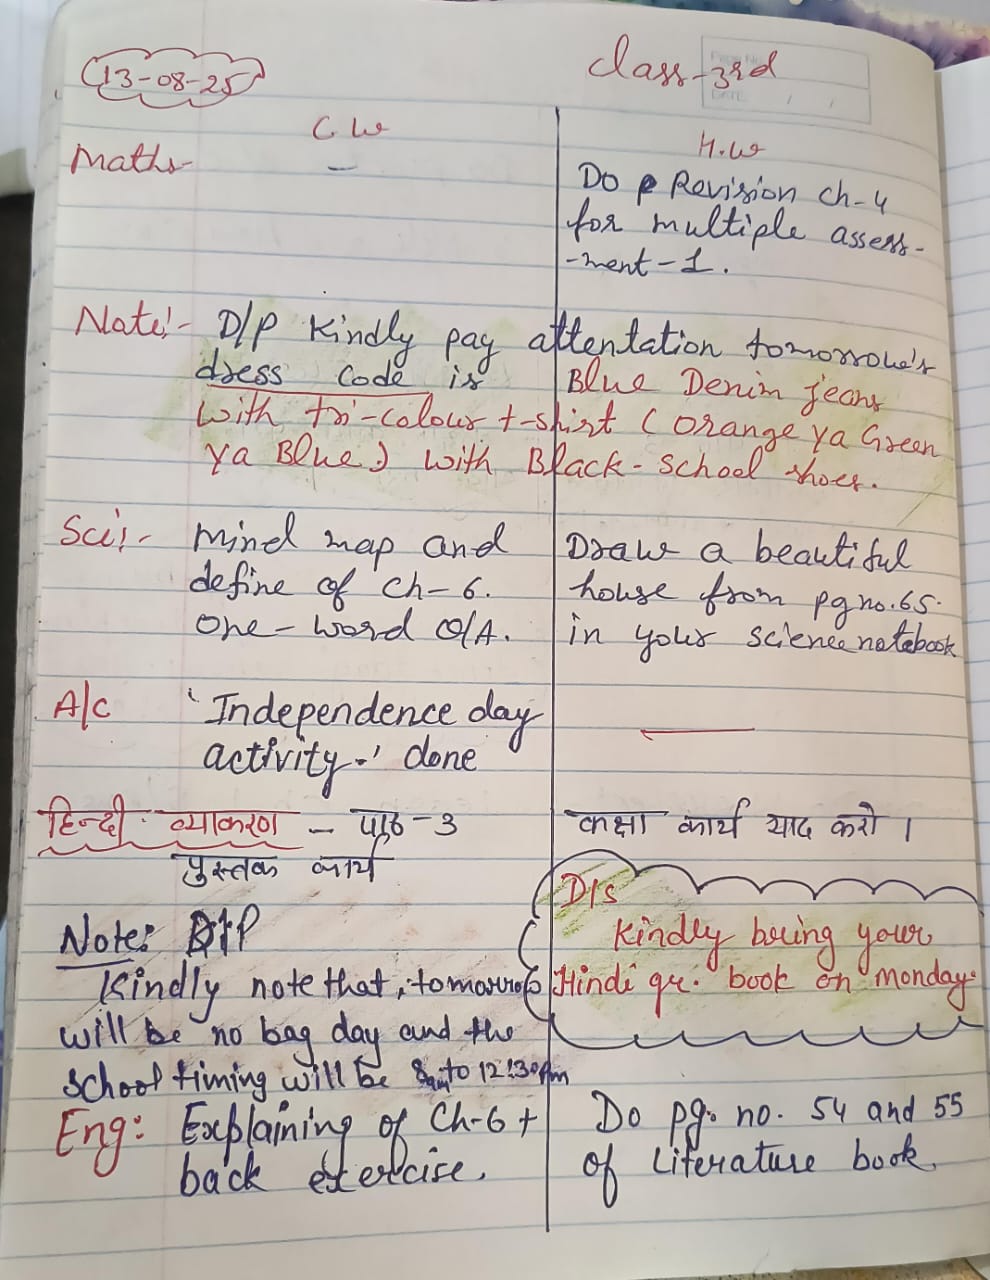 13-08-25
Class-3rd
C.W
H.W
Maths
Do Revision ch-4
for multiple assess-
-ment-1.
Note:- D/P Kindly pay attentation tomorrow's
dress code is Blue Denim jeans
With tri-colour t-shirt (orange ya Green
ya Blue) with Black-school shoes.
Sci:- Mind map and
define of Ch-6.
one-word Q/A.
Draw a beautiful
house from pg no.65.
in your science notebook
A/C 'Independence day
activity-' done
हिन्दी व्याकरण - पाठ-3
पुस्तक कार्य
कक्षा कार्य याद करो ।
D/S
Kindly bring your
Hindi gr. book on Monday.
Note: D/P
Kindly note that, tomorrow
will be no bag day and the
school timing will be 8am to 12:30pm
Eng: Explaining of Ch-6 +
back exercise.
Do pg. no. 54 and 55
of Literature book.